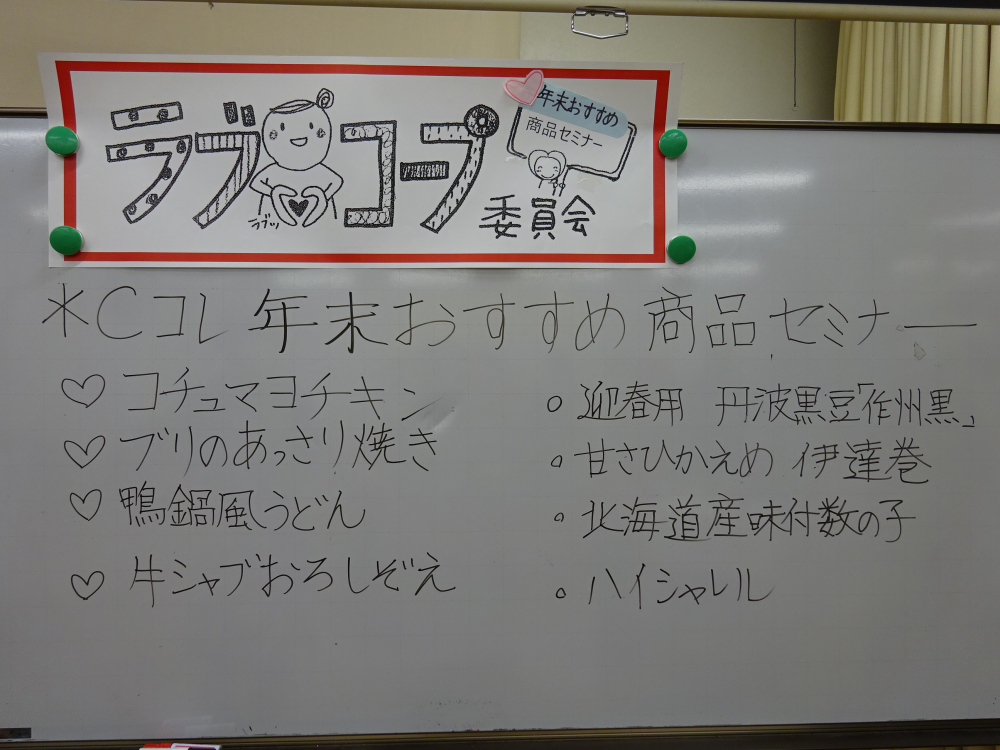 ラブコープ
ラブッ
委員会
年末おすすめ
商品セミナー
*Cコレ 年末おすすめ商品セミナー
♡ コチュマヨチキン
♡ ブリのあっさり焼き
♡ 鴨鍋風うどん
♡ 牛シャブおろしぞえ
○ 迎春用 丹波黒豆「作州黒」
○ 甘さひかえめ 伊達巻
○ 北海道産味付数の子
○ ハイシャレル